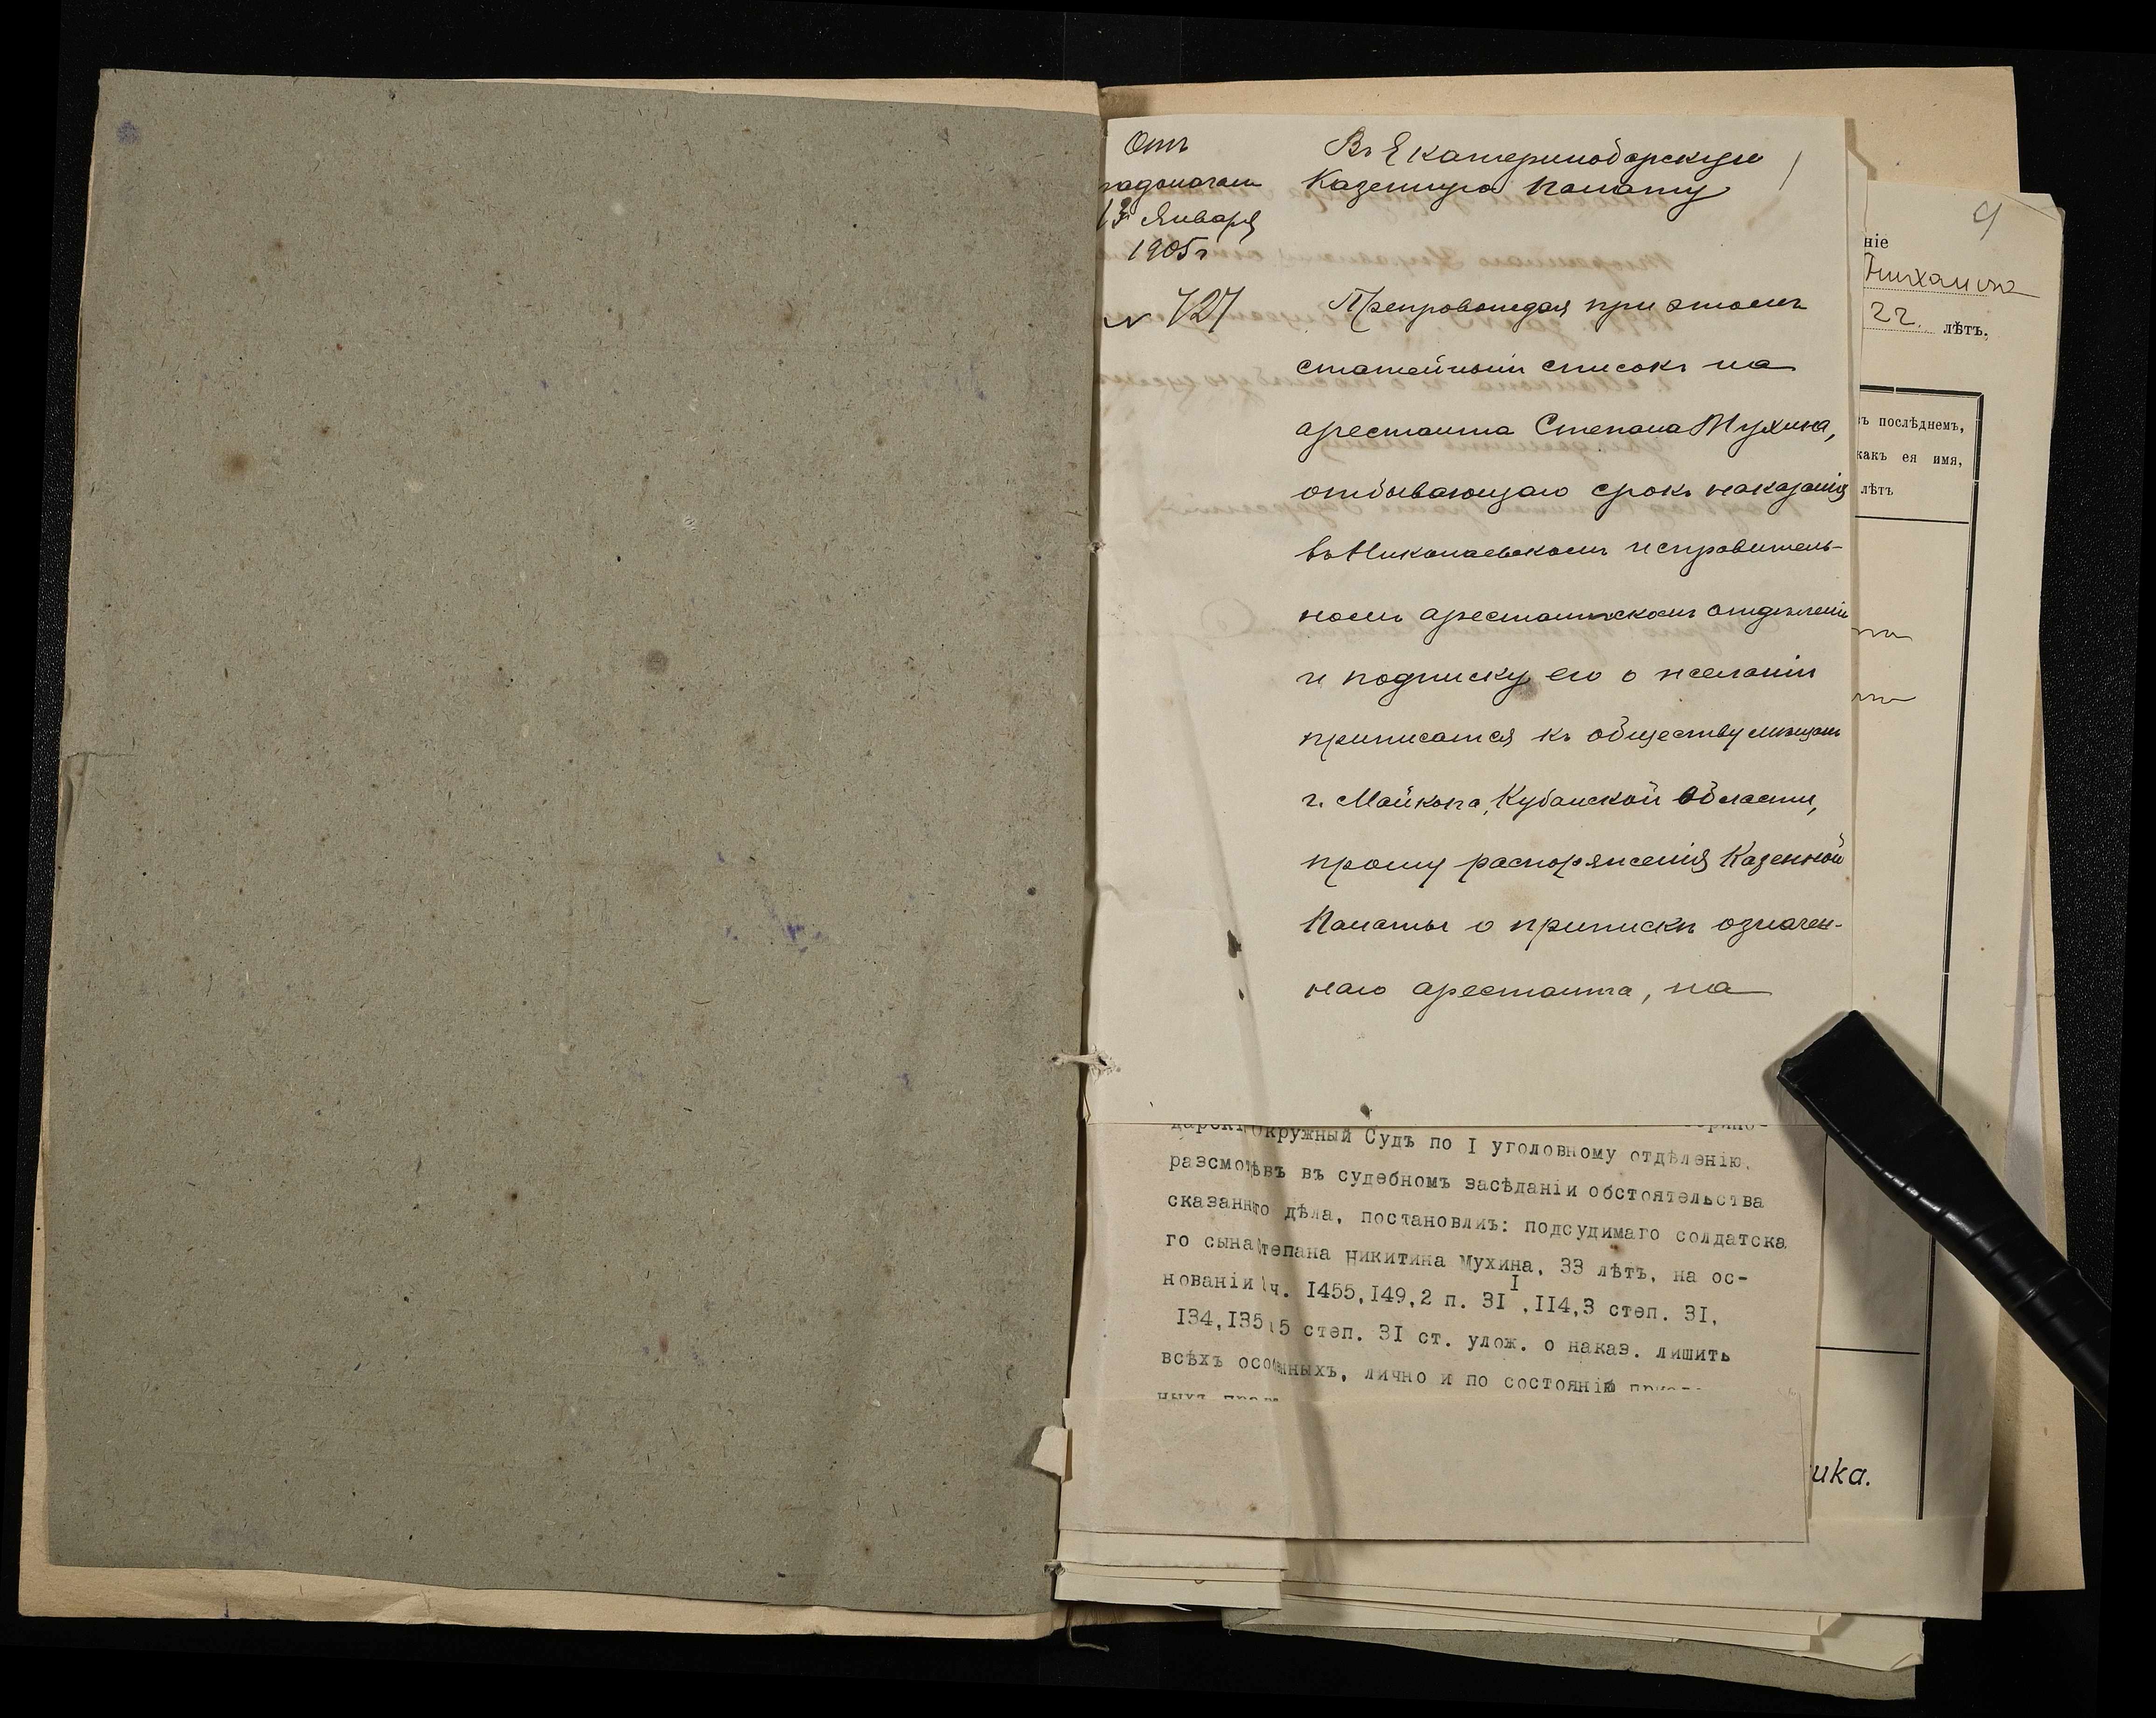 Отъ
13 Января
1905 г
№ 727
Въ Екатеринодарскую
Казенную Палату
Препровождая при этомъ
статейный списокъ на
арестанта Степана Мухина,
отбывающаго срокъ наказанія
въ Николаевскомъ исправитель-
номъ арестантскомъ отдѣленіи
и подписку его о желаніи
приписатся къ обществу мѣщанъ
г. Майкопа, Кубанской Области,
прошу распоряженія Казенной
Палаты о припискѣ означен-
наго арестанта, на
Окружный Судъ по I уголовному отдѣленію,
въ судебномъ засѣданіи обстоятельства
дѣла, постановлиъ: подсудимаго солдатска
го сына Степана Никитина Мухина, 33 лѣтъ, на ос-
нованіи ч. 1455,149,2 п. 31 I ,114,3 степ. 31,
134,135 5 степ. 31 ст. улож. о наказ. лишить
всѣхъ лично и по состоянію
9
ніе
22 лѣтъ.
въ послѣднемъ,
какъ ея имя,
лѣтъ